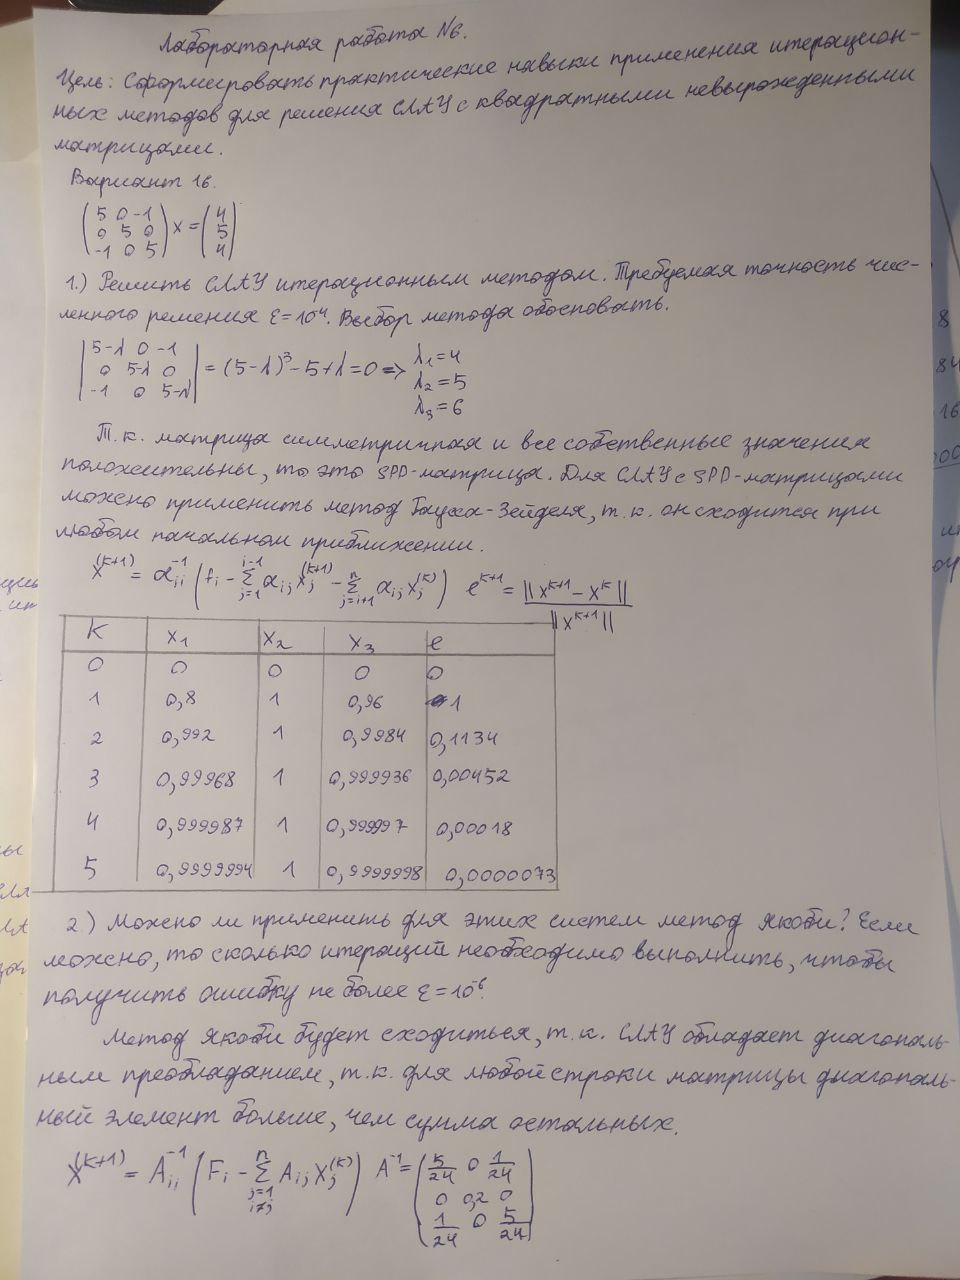 Лабораторная работа №6.
Цель: Сформировать практические навыки применения итерацион-
ных методов для решения СЛАУ с квадратными невырожденными
матрицами.
Вариант 16.
(5 0 -1; 0 5 0; -1 0 5) x = (4; 5; 4)
1.) Решить СЛАУ итерационным методом. Требуемая точность чис-
ленного решения ε=10⁻⁴. Выбор метода обосновать.
|5-λ 0 -1; 0 5-λ 0; -1 0 5-λ| = (5-λ)³-5+λ=0 => λ₁=4 λ₂=5 λ₃=6
Т.к. матрица симметричная и все собственные значения
положительны, то это SPD-матрица. Для СЛАУ с SPD-матрицами
можно применить метод Гаусса-Зейделя, т.к. он сходится при
любом начальном приближении.
x^(k+1) = a_ii^-1 (f_i - Σ_{j=1}^{i-1} a_ij x_j^(k+1) - Σ_{j=i+1}^{n} a_ij x_j^(k)) e^{k+1} = ||x^{k+1} - x^k|| / ||x^{k+1}||
K x₁ x₂ x₃ e
0 0 0 0 0
1 0,8 1 0,96 1
2 0,992 1 0,9984 0,1134
3 0,99968 1 0,999936 0,00452
4 0,999987 1 0,999997 0,00018
5 0,9999994 1 0,9999998 0,0000073
2.) Можно ли применить для этих систем метод Якоби? Если
можно, то сколько итераций необходимо выполнить, чтобы
получить ошибку не более ε=10⁻⁶.
Метод Якоби будет сходиться, т.к. СЛАУ обладает диагональ-
ным преобладанием, т.к. для любой строки матрицы диагональ-
ный элемент больше, чем сумма остальных.
x^(k+1) = A_ii^-1 (F_i - Σ_{j=1, i≠j}^{n} A_ij x_j^(k)) A^-1 = (5/24 0 1/24; 0 0,2 0; 1/24 0 5/24)